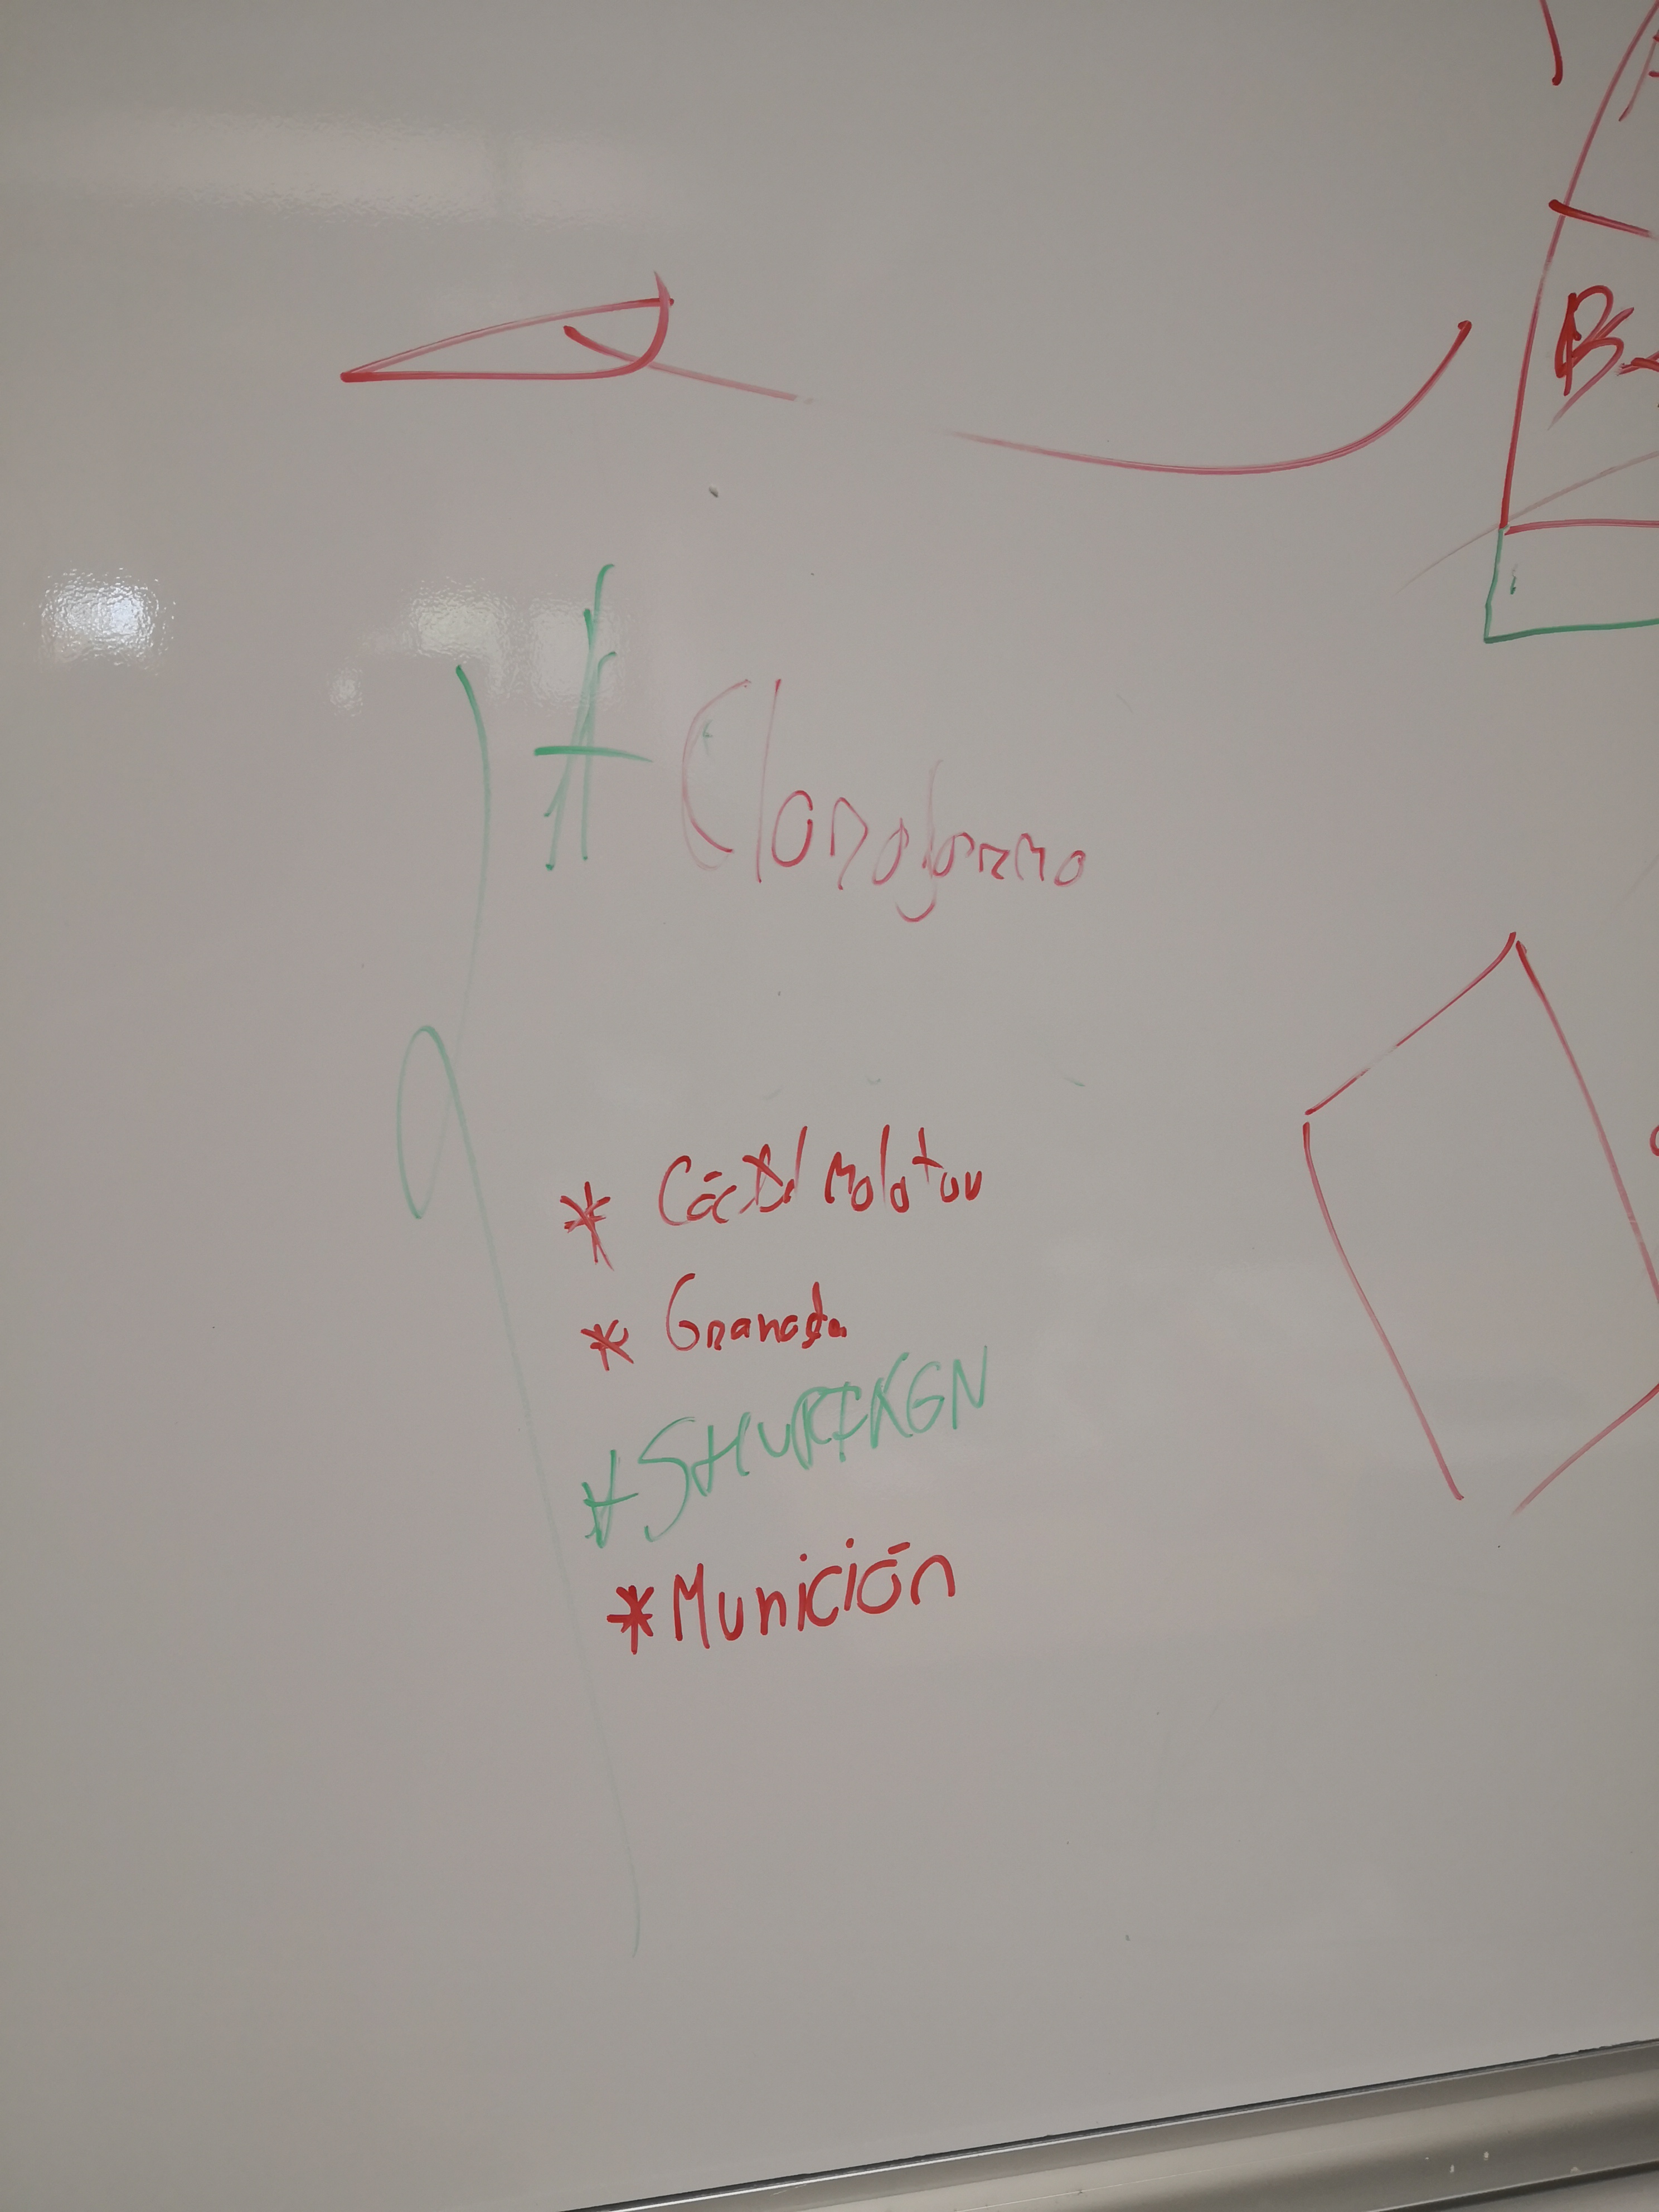 * Cloroformo
* Cóctel molotov
* Granada
* SHURIKEN
* Munición
B